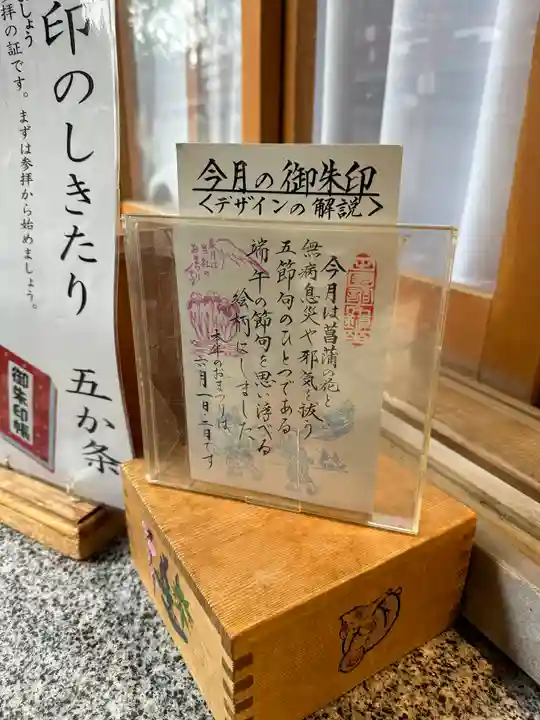 今月の御朱印
<デザインの解説>
今月は菖蒲の花と
無病息災や邪気を祓う
五節句のひとつである
端午の節句を思い浮べる
絵柄にしました
本年のおまつりは
六月一日二日です
印のしきたり 五か条
ましょう
拝の証です。まずは参拝から始めましょう。
御朱印帳